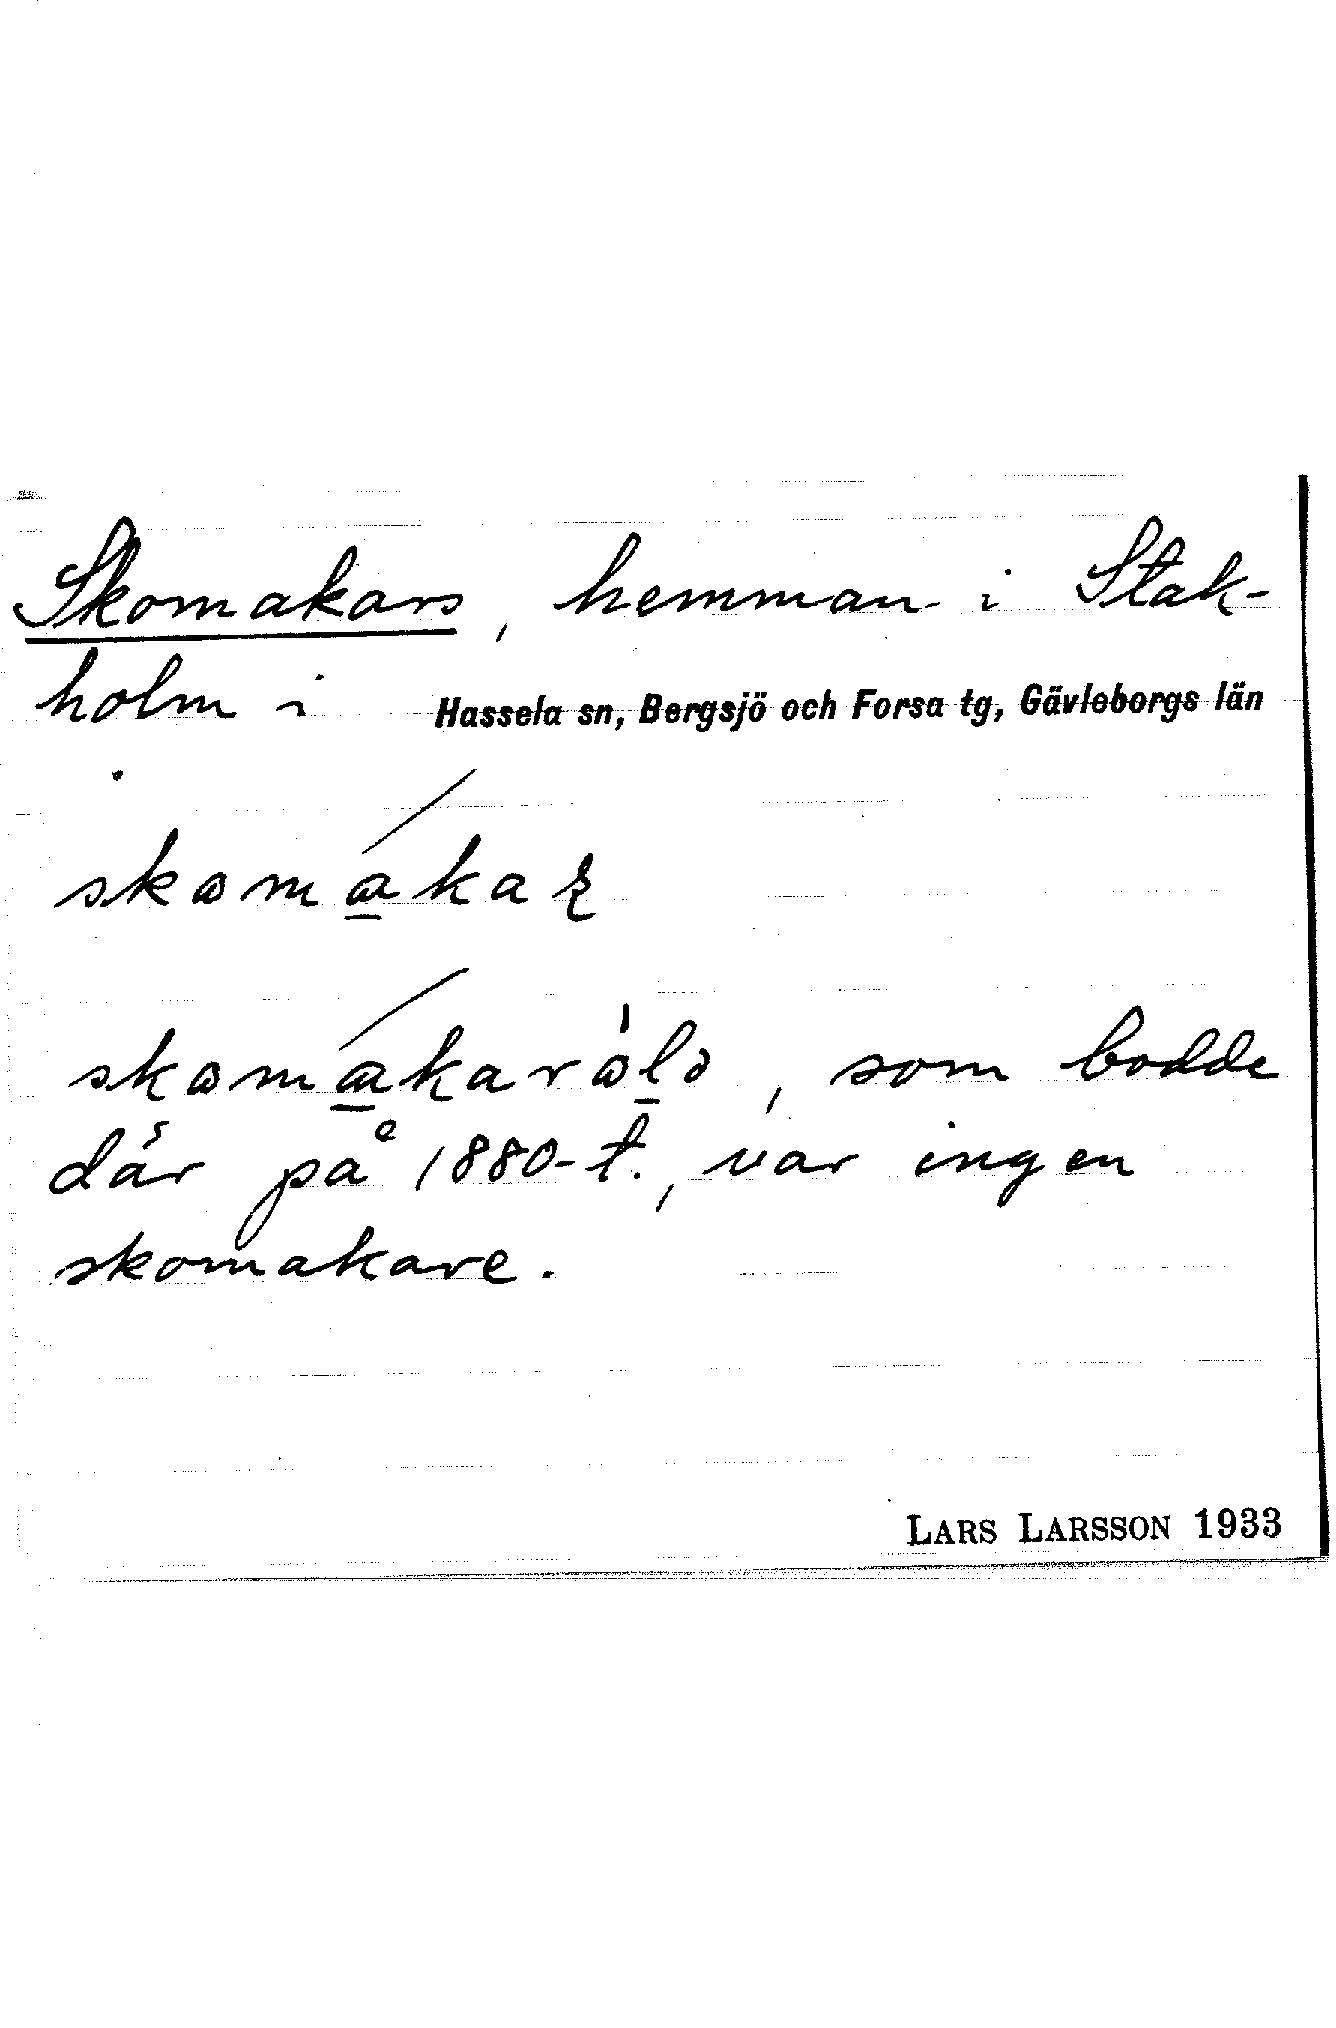 Skomakars, hemman i Stak-
holm i Hassela sn, Bergsjö och Forsa tg, Gävleborgs län
skɷmákaʂ
skɷmákarɷ̀lə, som bodde
där på 1880-t., var ingen
skomakare.
LARS LARSSON 1933